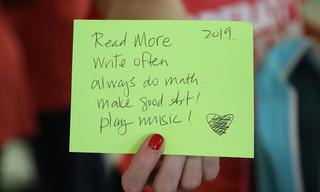 Read More 2019.
write often
always do math.
make good sh*t!
play music!